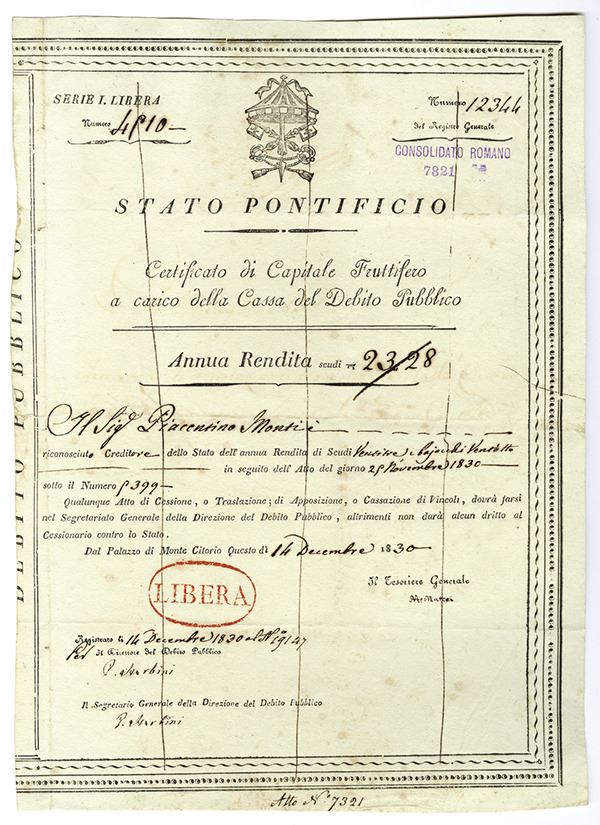 SERIE I. LIBERA
Numero
Numero 12344
del Registro Generale
CONSOLIDATO ROMANO
7321
STATO PONTIFICIO
Certificato di Capitale Fruttifero
a carico della Cassa del Debito Pubblico
Annua Rendita scudi 23/28
Il Sig. Piacentino Monti
riconosciuto Creditore dello Stato dell'annua Rendita di Scudi Ventitre e bajocchi Ventotto
in seguito dell'Atto del giorno 25 Novembre 1830
sotto il Numero 5399
Qualunque Atto di Cessione, o Traslazione; di Apposizione, o Cassazione di Vincoli, dovrà farsi
nel Segretariato Generale della Direzione del Debito Pubblico, altrimenti non darà alcun dritto al
Cessionario contro lo Stato.
Dal Palazzo di Monte Citorio Questo dì 14 Decembre 1830
Il Tesoriere Generale
LIBERA
Registrato li 14 Decembre 1830 al N.
Per Il Direttore del Debito Pubblico
Il Segretario Generale della Direzione del Debito Pubblico
Atto N.° 7321
DEBITO PUBBLICO